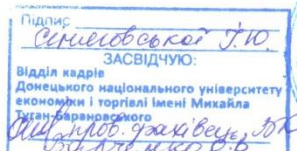 Підпис
Г.Ю.
ЗАСВІДЧУЮ:
Відділ кадрів
Донецького національного університету
економіки і торгівлі імені Михайла
Туган-Барановського
пров. фахівець ВК